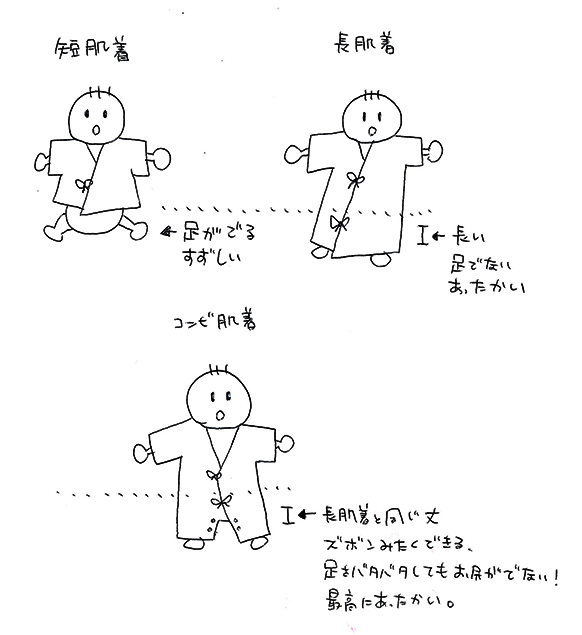 短肌着
長肌着
←足がでる
すずしい
←長い
足でない
あったかい
コンビ肌着
←長肌着と同じ丈
ズボンみたくできる、
足をバタバタしてもお尻がでない!
最高にあったかい。